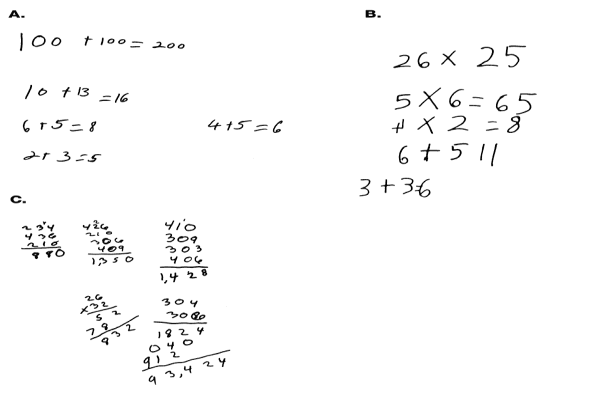 A.
100 + 100 = 200
10 + 13 = 16
6 + 5 = 8
4 + 5 = 6
2 + 3 = 5
B.
26 × 25
5 × 6 = 65
4 × 2 = 8
6 + 5 11
3 + 3=6
C.
234
436
210
880
426
210
306
409
1,350
410
309
303
406
1,428
26
×32
52
78
932
304
306
1824
040
912
93,424